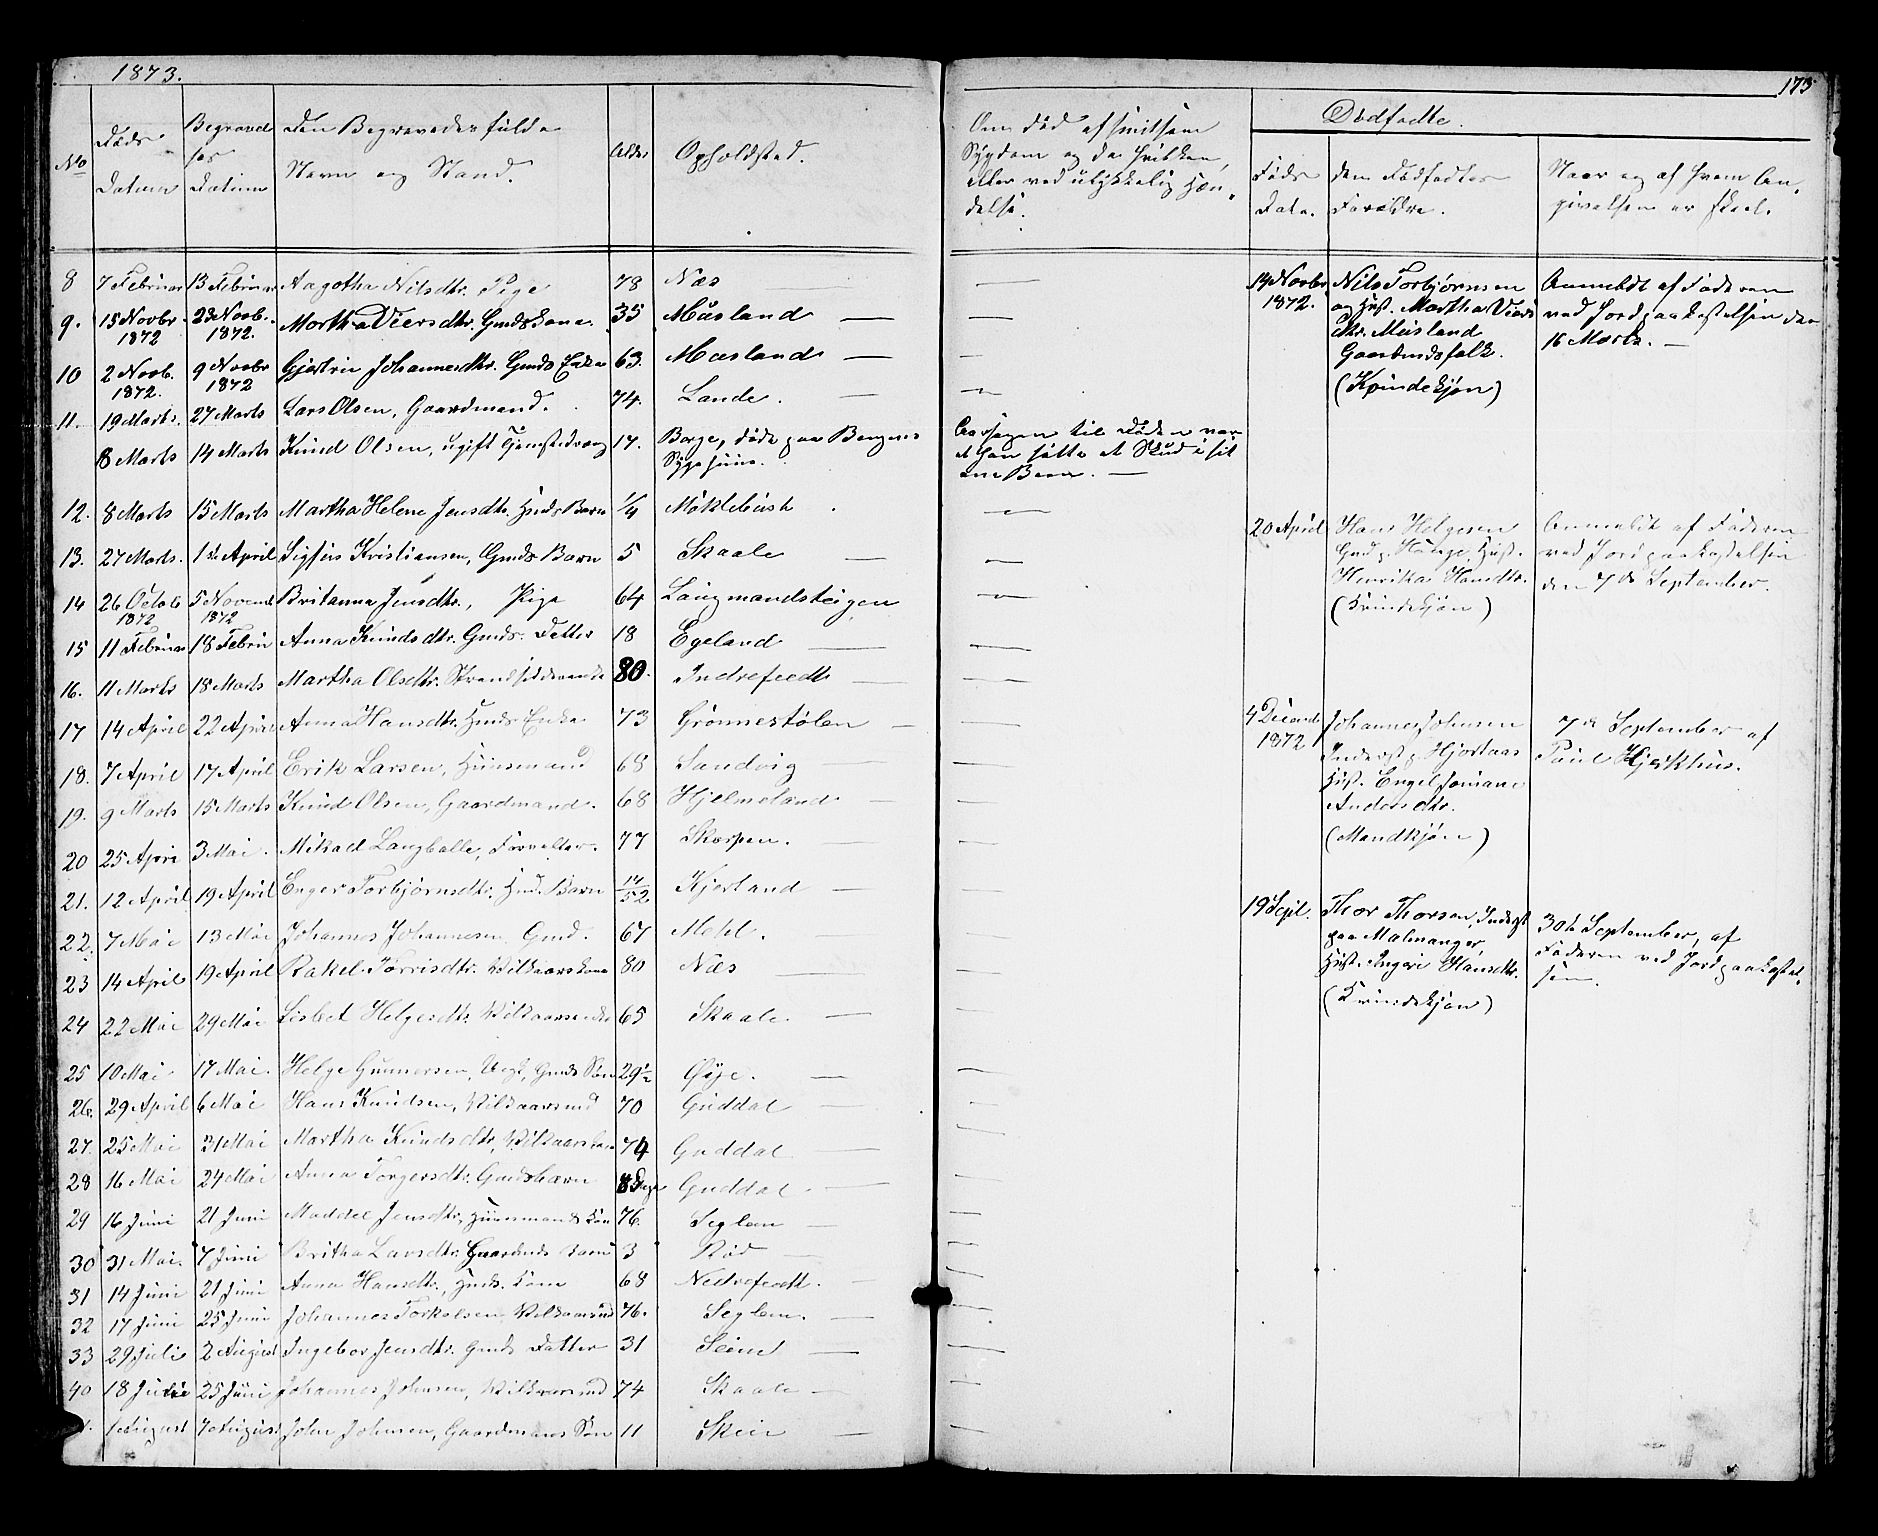 1873.
173
No
Døds Datum
Begravelses Datum
Den Begravedes fulde Navn og Stand.
Alder
Opholdsted.
Om død af smitsom
Sygdom og da hvilken,
eller ved ulykkelig Hæn-
delse.
Dødfødte.
Føds Dato.
den Dødfødtes Forældre.
Naar og af hvem An-
givelsen er skeet.
8 7 Februar 13 Februar Aagotha Nilsdtr. Pige 78 Næs —
9. 15 Novbr. 1872 23 Novb. 1872. Martha Viersdtr. Gmds Kone. 35 Musland —
10 2 Novb. 1872. 9 Novbr 1872 Gjertrü Johannesdtr. Gmds Enke 63. Musland —
11. 19 Marts. 27 Marts Lars Olsen, Gaardmand. 74. Lande. —
8 Marts 14 Marts Knud Olsen, ugift Tjenestedreng 17. Borge, døde paa Bergens
Sygehuus.
Aarsagen til Døden var
at han fik et Skud i sit
ene Been. —
12. 8 Marts 15 Marts Martha Helene Jensdtr. Hmds Barn 1/4 Møklebust
13. 27 Marts. 1ste April Sigfus Kristiansen, Gmds Barn 5 Skaale —
14 26 Octob 1872 5 Novemb 1872 Britanna Jensdtr., Pige 64 Laugmandsteigen
15 11 Februar 18 Febru Anna Knudsdtr. Gmds. Datter 18 Egeland —
16. 11 Marts 18 Marts Martha Olsdtr. Strandsidderenke 80. Indrefredt —
17 14 April 22 April Anna Hansdtr. Hmds Enke 73 Grønnestølen —
18. 7 April 17 April Erik Larsen, Huusmand 68 Sandvig
19. 9 Marts 15 Marts Knud Olsen, Gaardmand. 68 Hjelmeland —
20 25 April 3 Mai. Mikael Langballe, Forvalter. 77 Skorpen. —
21. 12 April 19 April Enger Torbjørnsdtr. Hmd. Barn 14/52 Kjerland —
22. 7 Mai 13 Mai Johannes Johannesen Gmd. 67 Mehl.
23 14 April 19 April Rakel Tørrisdtr. Vilkaarskone 80 Næs —
24 22 Mai 29 Mai Lisbet Helgesdtr. Vilkaarsenke 65 Skaale. —
25 10 Mai 17 Mai. Helge Gunnersen, Ugft, Gmds Søn 29 1/2 Øye. —
26. 29 April 6 Mai Hans Knudsen, Vilkaarsmd 70 Guddal —
27. 25 Mai 31 Mai Martha Knudsdtr, Vilkaarskone 74 Guddal —
28 16 Mai 24 Mai Anna Torgersdtr. Gmdsbarn 8 Dage Guddal. —
29 16 Juni 21 Juni Maddel Jensdtr, Huusmands Kone 76. Seglem —
30 31 Mai. 7 Juni Britha Larsdtr. Gaardmds barn 3 Rød —
31 14 Juni 21 Juni Anna Hansdtr., Hmds. Kone 68 Nedrefredt. —
32 17 Juni 25 Juni Johannes Torkelsen Vilkaarsmd 76. Seglem. —
33 29 Juli 2 August Ingebor Jensdtr. Gmds Datter 31 Seim —
40 18 Juni 25 Juni Johannes Johnsen, Vilkaarsmd 74 Skaale —
1 August 7 August John Johnsen, Gaardmans Søn 11 Skeie —
14 Novbr 1872.
Nils Torbjørnsen
og Hust. Martha Viers
dtr. Musland
Gaardmdsfolk.
(Kvindekjøn)
Anmeldt af Faderen
ved Jordpaakastelsen den
16 Marts. —
20 April
Hans Helgesen
Gmd p. Hauge, Hust.
Henrika Hansdtr.
(Kvindekjøn)
Anmeldt af Faderen
ved Jordpaakastelsen
den 7de September.
4 Decemb 1872
Johannes Johnsen
Inderst p. Hjortaas
Hust. Engel Joniane
Andersdtr.
(Mandkjøn)
7de September af
Paul Hjerkhus.
19 Sept.
Thor Thorsen, Inderst
paa Malmanger
Hust. Ingeri Hansdtr.
(Kvindekjøn)
30te September, af
Faderen ved Jordpaakastel-
sen.